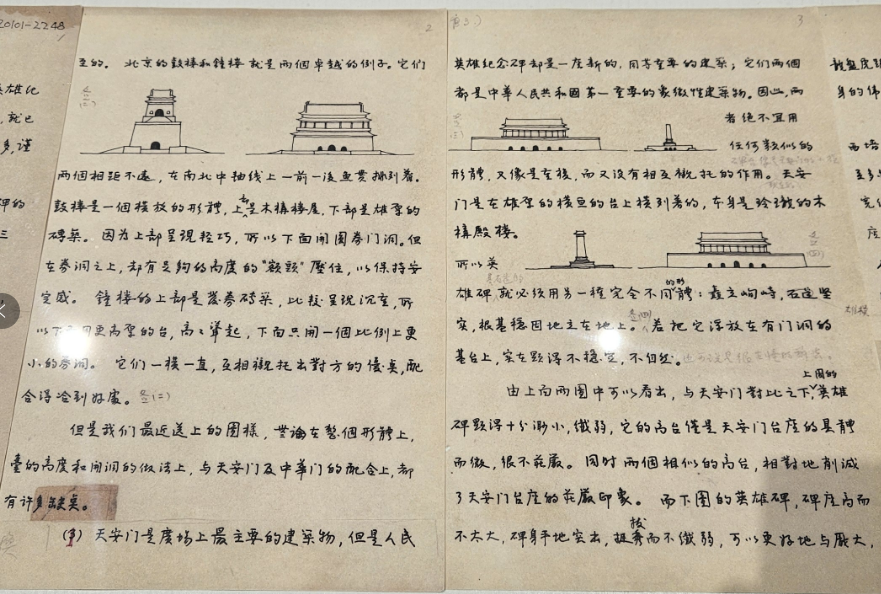 20101-2248
2
至的。北京的鼓樓和鐘樓就是兩個卓越的例子。它們
兩個相距不遠，在南北中軸線上一前一後魚貫排列着。
鼓樓是一個橫放的形體，上部是木構樓屋，下部是雄厚的
磚築。因為上部呈現輕巧，所以下面開圓券門洞。但
在券洞之上，却有足夠的高度的“額頭”壓住，以保持安
定感。鐘樓的上部是發券磚築，比較呈現沉重，所
以下面用更高厚的台，高高聳起，下面只開一個比例上更
小的券洞。它們一橫一直，互相襯托出對方的優點，配
合得恰到好處。
但是我們最近送上的圖樣，無論在整個形體上，
臺的高度和開洞的做法上，與天安门及中華门的配合上，都
有許多缺點。
(1) 天安门是廣場上最主要的建築物，但是人民
3
英雄紀念碑却是一座新的，同等重要的建築；它们兩個
都是中華人民共和國第一重要的象徵性建築物。因此，兩
者绝不宜用
任何類似的
形體，又像是在複，而又沒有相互襯托的作用。天安
门是在雄厚的橫亘的台上橫列着的，本身是玲瓏的木
構殿樓。
所以英
雄碑就必須用另一種完全不同的形體：矗立峋峙，
實，根基穩固地立在地上。若把它浮放在有门洞的
基台上，實在顯得不穩定，不自然。
由上面兩圖中可以看出，與天安门對比之下，上圖的英雄
碑顯得十分渺小，纖弱，它的高台僅是天安门台座的具體
而微，很不莊嚴。同時兩個相似的高台，相對地削減
了天安门台座的莊嚴印象。而下圖的英雄碑，碑座高而
不太大，碑身平地突出，挺拔而不纖弱，可以更好地与龐大，